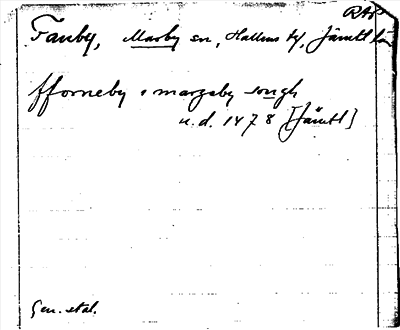 RAP
Fauby, Marby sn, Hallens tg, Jämtl län
fforneby i margaby songh
u.d. 1478 [Jämtl]
Gen. stab.